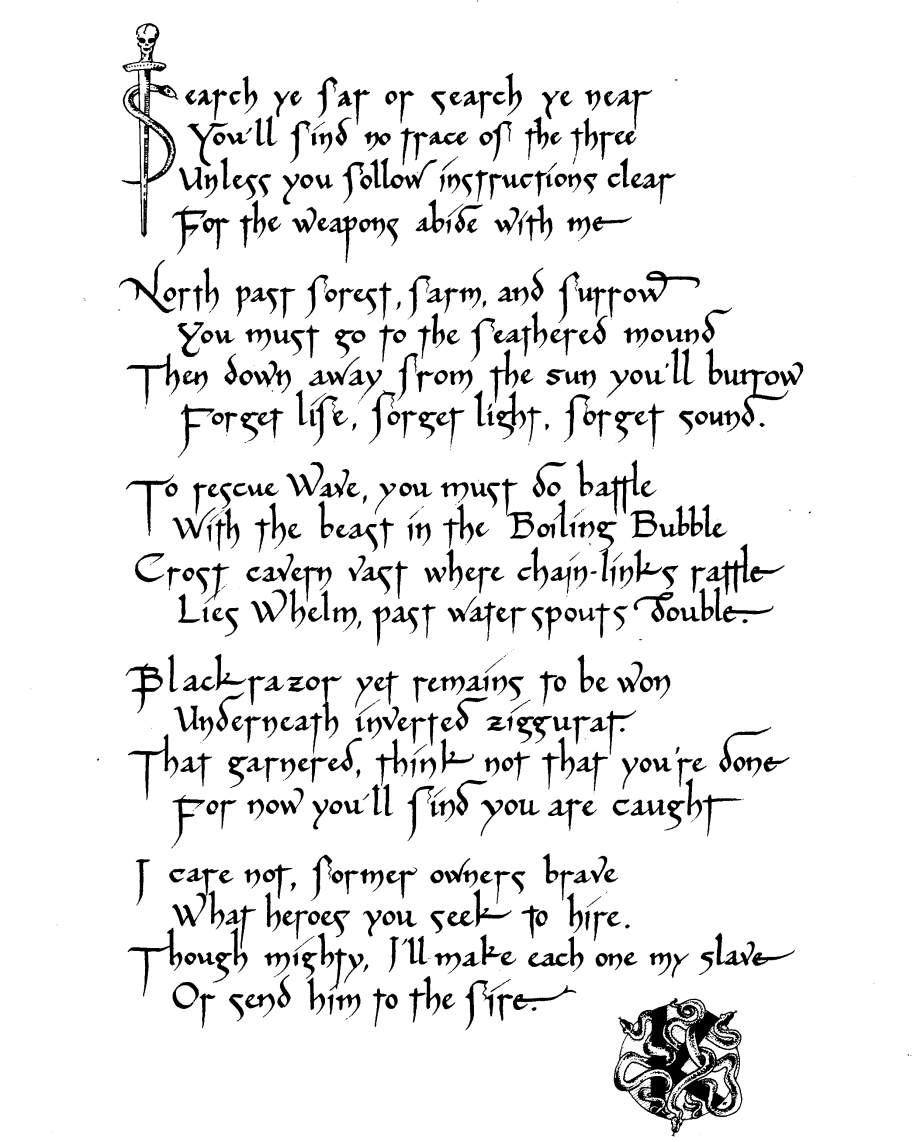 Search ye far or search ye near
You'll find no trace of the three
Unless you follow instructions clear
For the weapons abide with me
North past forest, farm, and furrow
You must go to the feathered mound
Then down away from the sun you'll burrow
Forget life, forget light, forget sound.
To rescue Wave, you must do battle
With the beast in the Boiling Bubble
Crost cavern vast where chain-links rattle
Lies Whelm, past waterspouts double.
Blackrazor yet remains to be won
Underneath inverted ziggurat.
That garnered, think not that you're done
For now you'll find you are caught
I care not, former owners brave
What heroes you seek to hire.
Though mighty, I'll make each one my slave
Or send him to the fire.
K